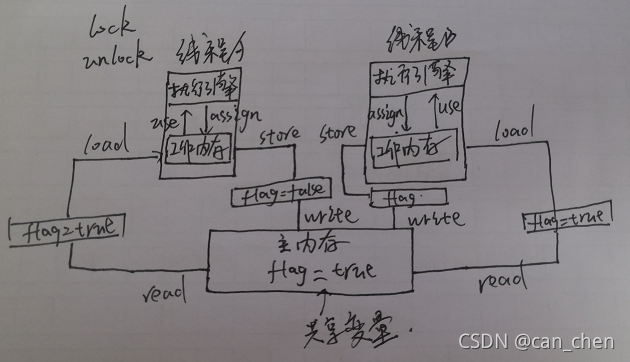 lock
unlock
线程A
线程B
执行引擎
执行引擎
use
assign
assign
use
load
工作内存
store
store
工作内存
load
flag=true
flag=false
flag
flag=true
write
write
主内存
flag=true
read
read
共享变量.
CSDN @can_chen